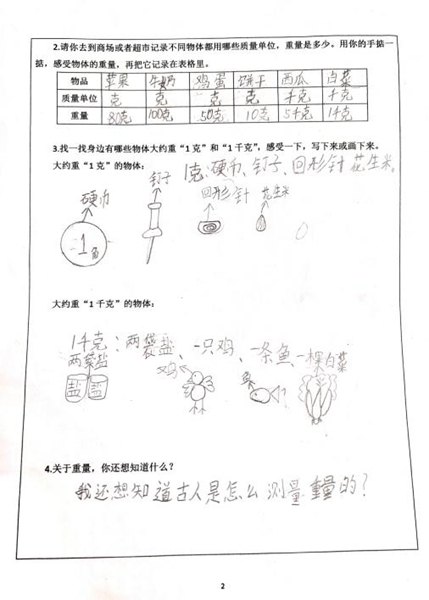 2.请你去到商场或者超市记录不同物体都用哪些质量单位，重量是多少。用你的手掂一
掂，感受物体的重量，再把它记录在表格里。
物品 苹果 牛奶 鸡蛋 饼干 西瓜 白菜
质量单位 克 克 克 克 千克 千克
重量 80克 100克 50克 10克 5千克 1千克
3.找一找身边有哪些物体大约重“1 克”和“1 千克”，感受一下，写下来或画下来。
大约重“1 克”的物体：
1克：硬币、钉子、回形针 花生米。
硬币 钉子 回形针 花生米
1角
大约重“1 千克”的物体：
1千克：两袋盐、一只鸡、一条鱼 一棵白菜
两袋盐 鸡 鱼
盐 盐
4.关于重量，你还想知道什么？
我还想知道古人是怎么测量重量的？
2